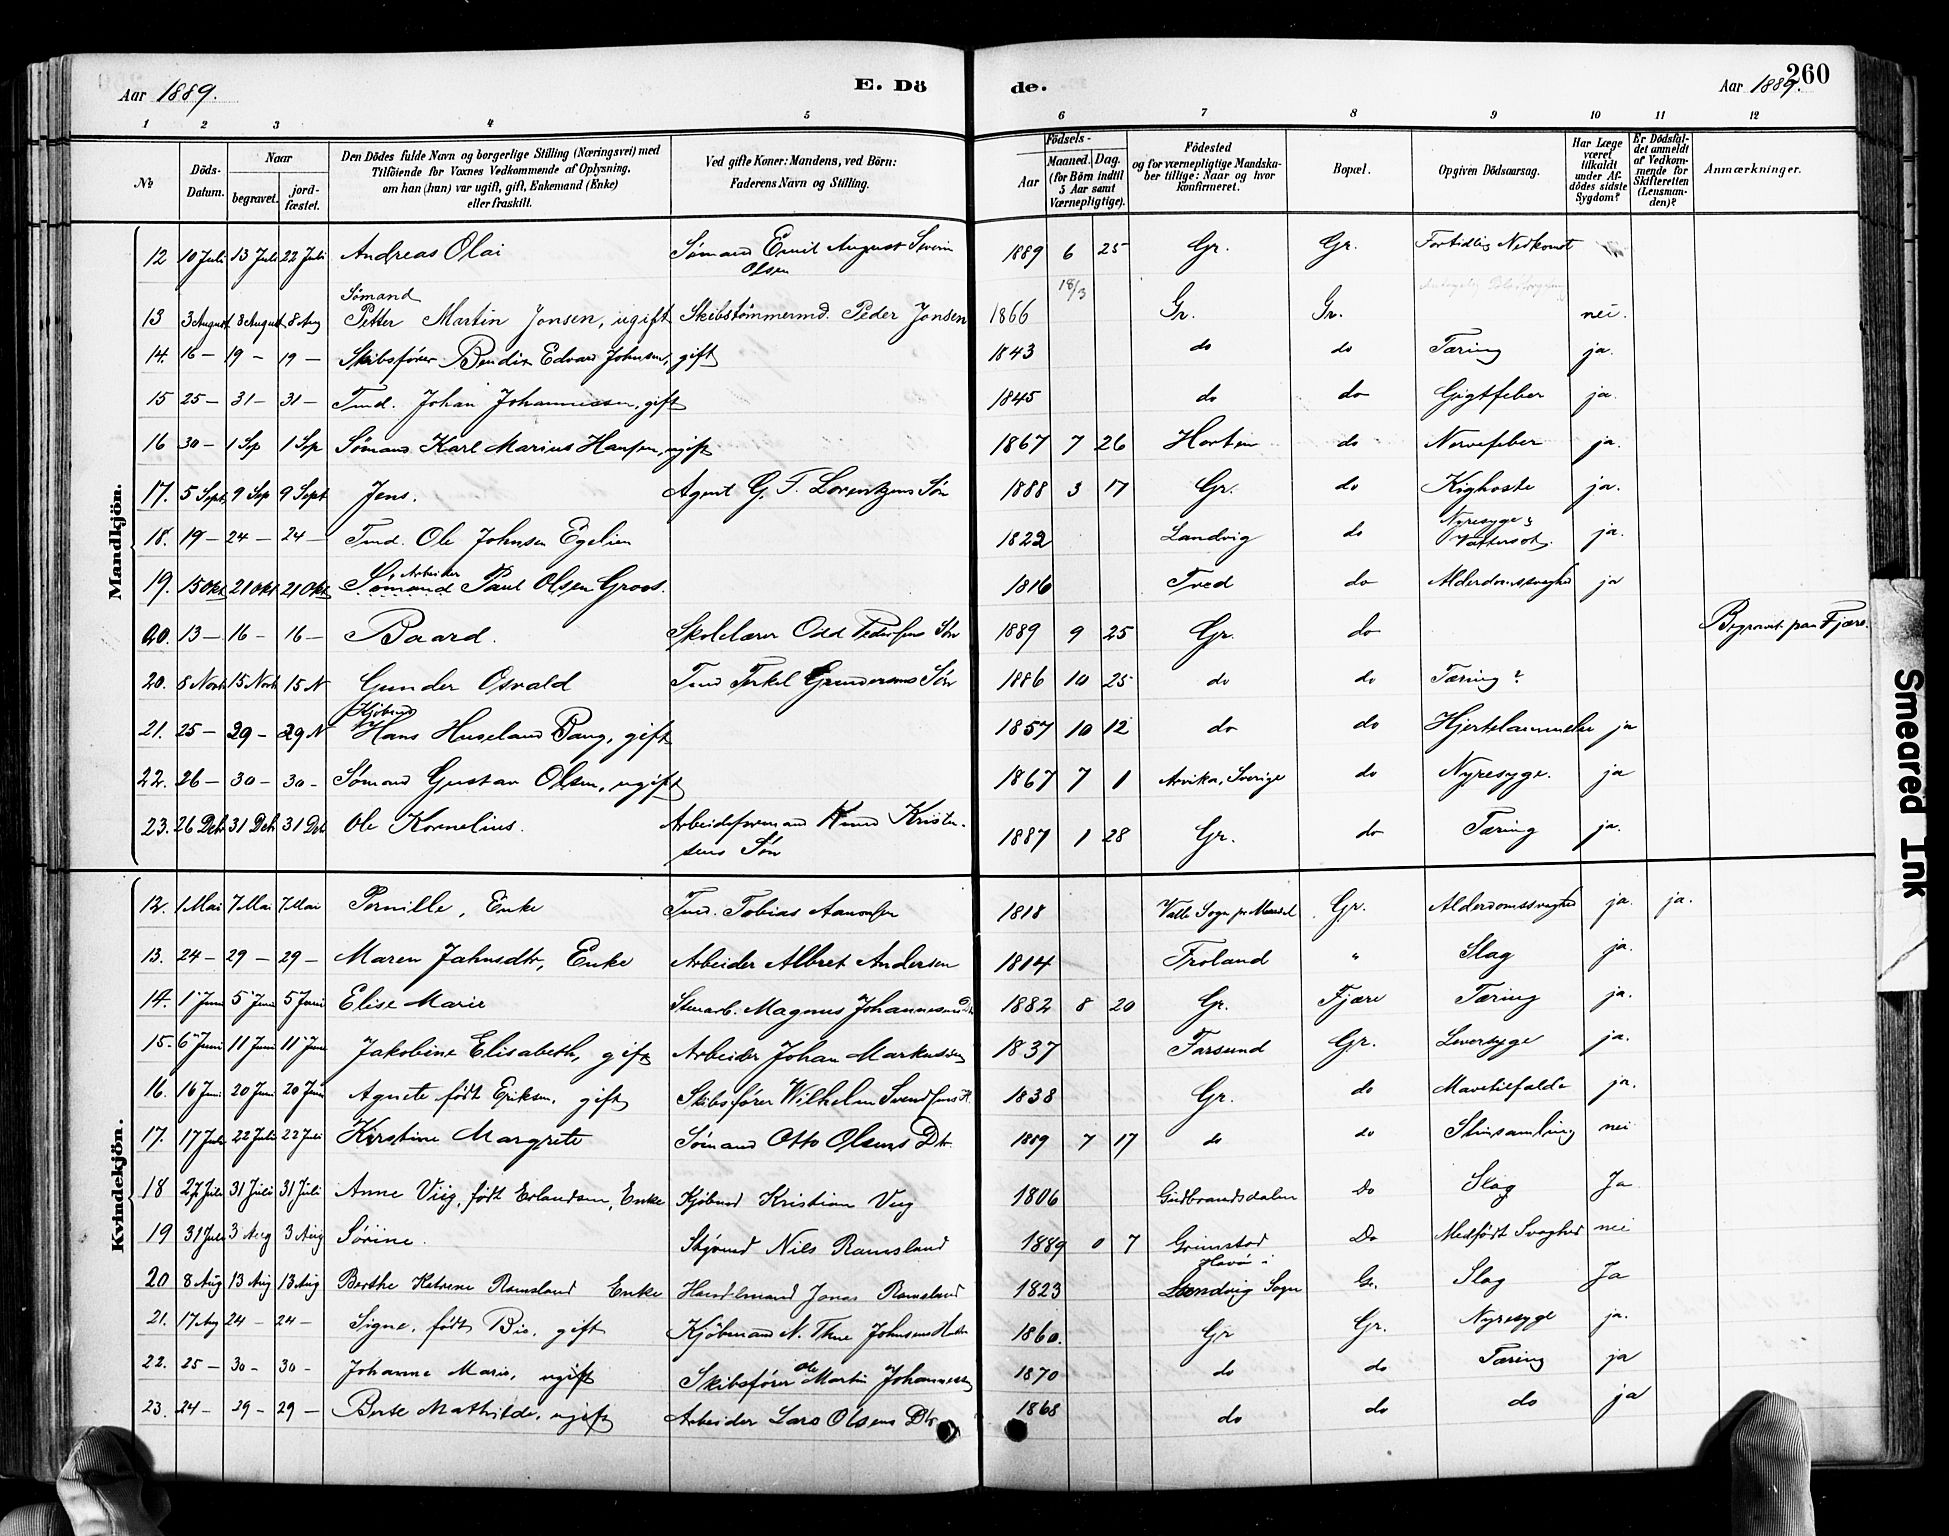 Aar 1889.
E. Dö
de.
Aar 1889.
260
1 2 3 4 5 6 7 8 9 10 11 12
№
Döds-Datum.
Naar
begravet.
jord-fæstet.
Den Dödes fulde Navn og borgerlige Stilling (Næringsvei) med
Tilföiende for Voxnes Vedkommende af Oplysning,
om han (hun) var ugift, gift, Enkemand (Enke)
eller fraskilt.
Ved gifte Koner: Mandens, ved Börn:
Faderens Navn og Stilling.
Födsels-
Aar
Maaned. Dag.
(for Börn indtil
5 Aar samt
Værnepligtige).
Födested
og for værnepligtige Mandska-
ber tillige: Naar og hvor
konfirmeret.
Bopæl.
Opgiven Dödsaarsag.
Har Læge
været
tilkaldt
under Af-
dödes sidste
Sygdom?
Er Dödsfal-
det anmeldt
af Vedkom-
mende for
Skifteretten
(Lensman-
den)?
Anmærkninger.
Mandkjön.
12 10 Juli 13 Juli 22 Juli Andreas Olai Sømand Emil August Severin Olsen 1889 6 25 Gr. Gr. Fortidlig Nedkomst
13 3 August 8 August 8 Aug Sømand Petter Martin Jonsen, ugift Skibstømmermd. Peder Jonsen 1866 18/3 Gr. Gr. nei.
14. 16 – 19 – 19 – Skibsfører Bendix Edvard Johnsen, gift 1843 do do Tæring ja.
15 25 – 31 – 31 – Tmd. Johan Johannessen, gift 1845 do do Gigtfeber ja.
16 30 – 1 Sp 1 Sp Sømand Karl Marius Hansen, ugift 1867 7 26 Horten do Nervefeber ja.
17. 5 Sept. 9 Sep 9 Sept Jens. Agent G. F. Lorentzens Søn 1888 3 17 Gr. do Kighoste ja.
18. 19 – 24 – 24 – Tmd. Ole Johnsen Egelien 1822 Landvig do Nyresyge & Vattersot. ja.
19. 15 Okt 21 Okt 21 Okt Arbeider Sømand Paul Olsen Groos. 1816 Tved do Alderdomssvaghed ja
20. 13 – 16 – 16 – Baard. Skolelærer Odd Pedersens Søn 1889 9 25 Gr. do Begravet paa Fjære.
20. 8 Novb 15 Novb 15 N Gunder Osvald Tmd Terkel Gundersens Søn 1886 10 25 do do Tæring?
21. 25 – 29 – 29 N Kjøbmd Hans Huseland Bang, gift 1857 10 12 do do Hjertelammelse ja
22. 26 – 30 – 30 – Sømand Gustav Olsen, ugift 1867 7 1 Arvika, Sverige do Nyresyge. ja
23. 26 Deb 31 Deb 31 Deb Ole Kornelius. Arbeidsformand Knud Kristensens Søn 1887 1 28 Gr. do Tæring ja.
Kvindekjön.
12. 1 Mai 7 Mai 7 Mai Pernille, Enke Tmd. Tobias Aanonsen 1818 Valle Sogn pr Mandal Gr. Alderdomssvaghed ja. ja.
13. 24 – 29 – 29 – Maren Jahnsdtr, Enke Arbeider Albret Andersen 1814 Froland " Slag ja.
14. 1 Juni 5 Juni 5 Juni Elise Marie Stenarb. Magnus Johannesens Dtr 1882 8 20 Gr. Fjære Tæring ja.
15. 6 Juni 11 Juni 11 Juni Jakobine Elisabeth, gift Arbeider Johan Markussen 1837 Farsund Gr. Leversyge ja.
16. 16 Juni 20 Juni 20 Juni Agnete, født Eriksen, gift Skibsfører Wilhelm Svendsens H. 1838 Gr. do Mavetilfælde ja.
17. 17 Juli 22 Juli 22 Juli Kirstine Margrete Sømand Otto Olsens Dtr. 1889 7 17 do do Slimsamling nei
18 27 Juli 31 Juli 31 Juli Anne Viig, født Erlandsen, Enke Kjøbmd Kristian Viig 1806 Gudbrandsdalen Do Slag Ja
19 31 Juli 3 Aug 3 Aug Sørine. Nils Ramsland 1889 0 7 Grimstad Do Medfødt Svaghed nei
20 8 Aug 13 Aug 13 Aug Berthe Katrine Ramsland Enke Handelsmand Jonas Ramsland 1823 Havø i Landvig Sogn Gr. Slag Ja
21. 17 Aug 24 – 24 – Signe, født Bie, gift Kjøbmand N. Thue Johnsens Hustru 1860. Gr Gr. Nyresyge ja.
22. 25 – 30 – 30 – Johanne Marie, ugift Skibsfører Ole Martin Johannessen 1870 do do Tæring ja
23. 24 – 29 – 29 – Berte Mathilde, ugift Arbeider Lars Olsens Dtr 1868 do do do ja
Smeared Ink